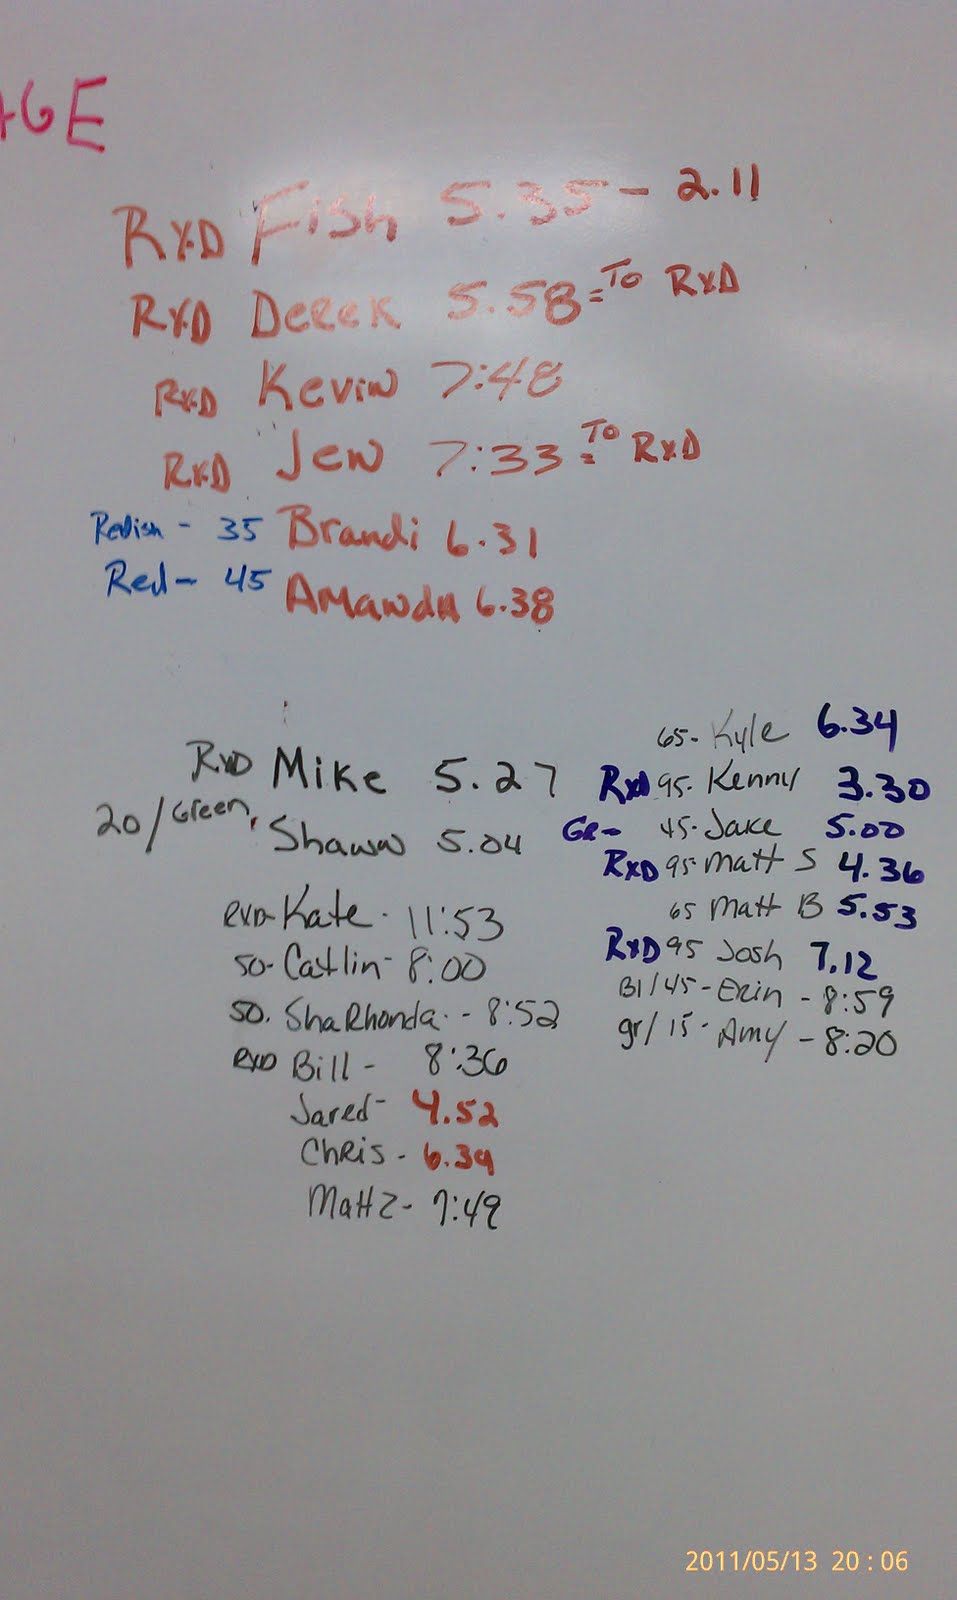 AGE
RXD Fish 5.35 - 2.11
RXD Derek 5.58 = To RXD
RXD Kevin 7:48
RXD Jen 7:33 = To RXD
Redish - 35 Brandi 6.31
Red - 45 Amanda 6.38
RXD Mike 5.27
20/Green, Shawn 5.04
RXD- Kate - 11:53
50- Caitlin - 8:00
50. ShaRhonda - - 8:52
RXD Bill - 8:36
Jared - 4.52
Chris - 6.39
Matt Z - 7:49
65- Kyle 6.34
RXD 95- Kenny 3.30
GR- 45- Jake 5.00
RXD 95- Matt S 4.36
65 Matt B 5.53
RXD 95 Josh 7.12
Bl/45 - Erin - 8:59
gr/15 - Amy - 8:20
2011/05/13 20:06